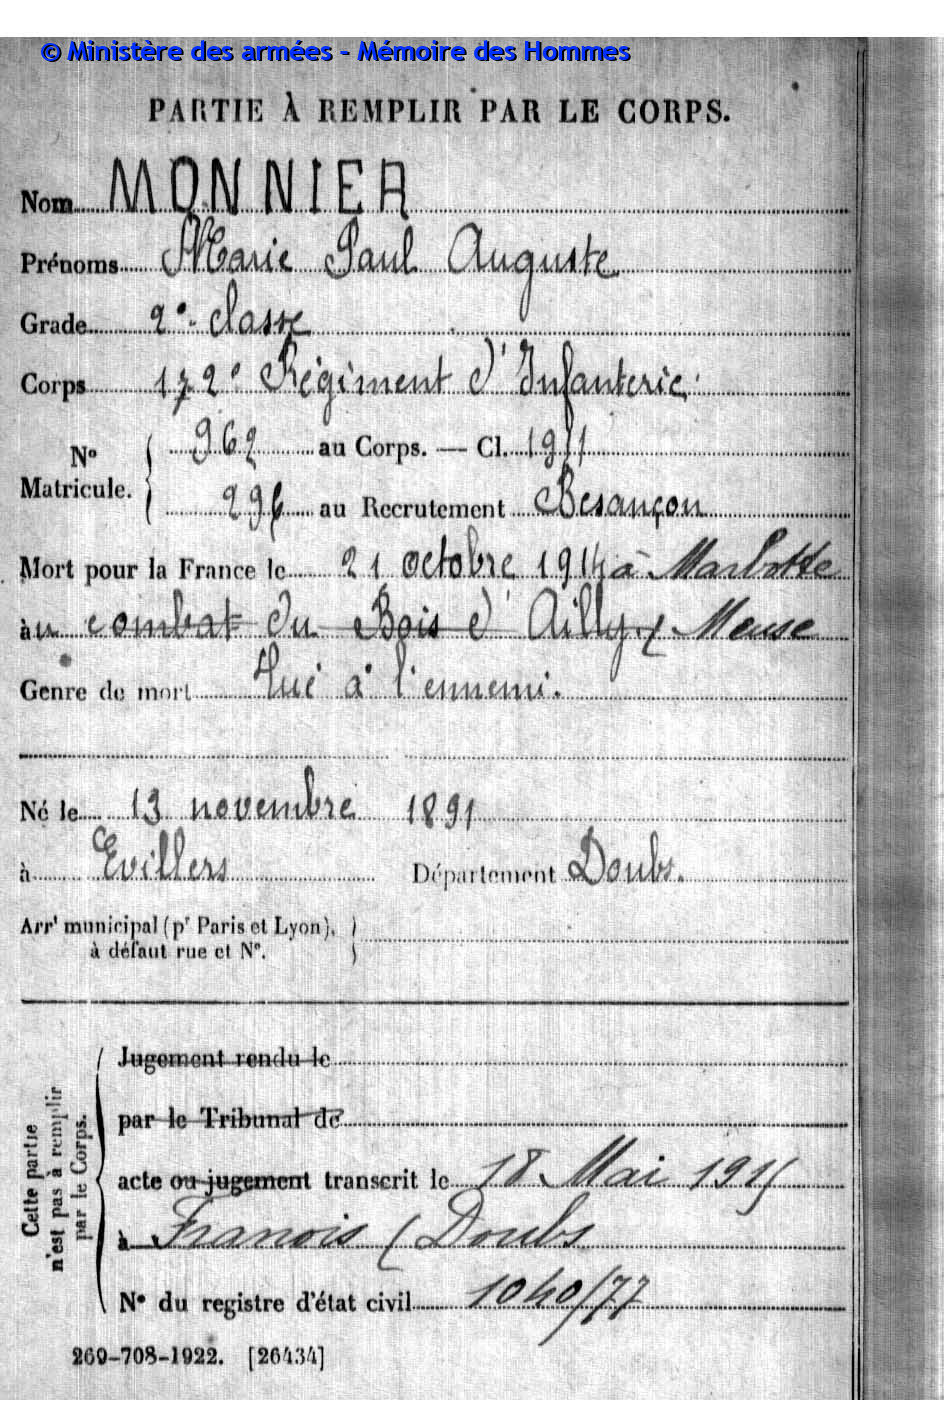 © Ministère des armées - Mémoire des Hommes
PARTIE À REMPLIR PAR LE CORPS.
Nom MONNIER
Prénoms Marie Paul Auguste
Grade 2e classe
Corps 172e Régiment d'Infanterie
No Matricule. 962 au Corps. — Cl. 1911
296 au Recrutement Besançon
Mort pour la France le 21 octobre 1914 à Marbotte
àu combat du Bois d'Ailly ( Meuse
Genre de mort Tué à l'ennemi.
Né le 13 novembre 1891
à Evillers Département Doubs.
Arrt municipal (pr Paris et Lyon),
à défaut rue et No.
Cette partie n'est pas à remplir par le Corps.
Jugement rendu le
par le Tribunal de
acte ou jugement transcrit le 18 Mai 1915
à Franois ( Doubs
No du registre d'état civil 1040/77
269-708-1922. [26434]